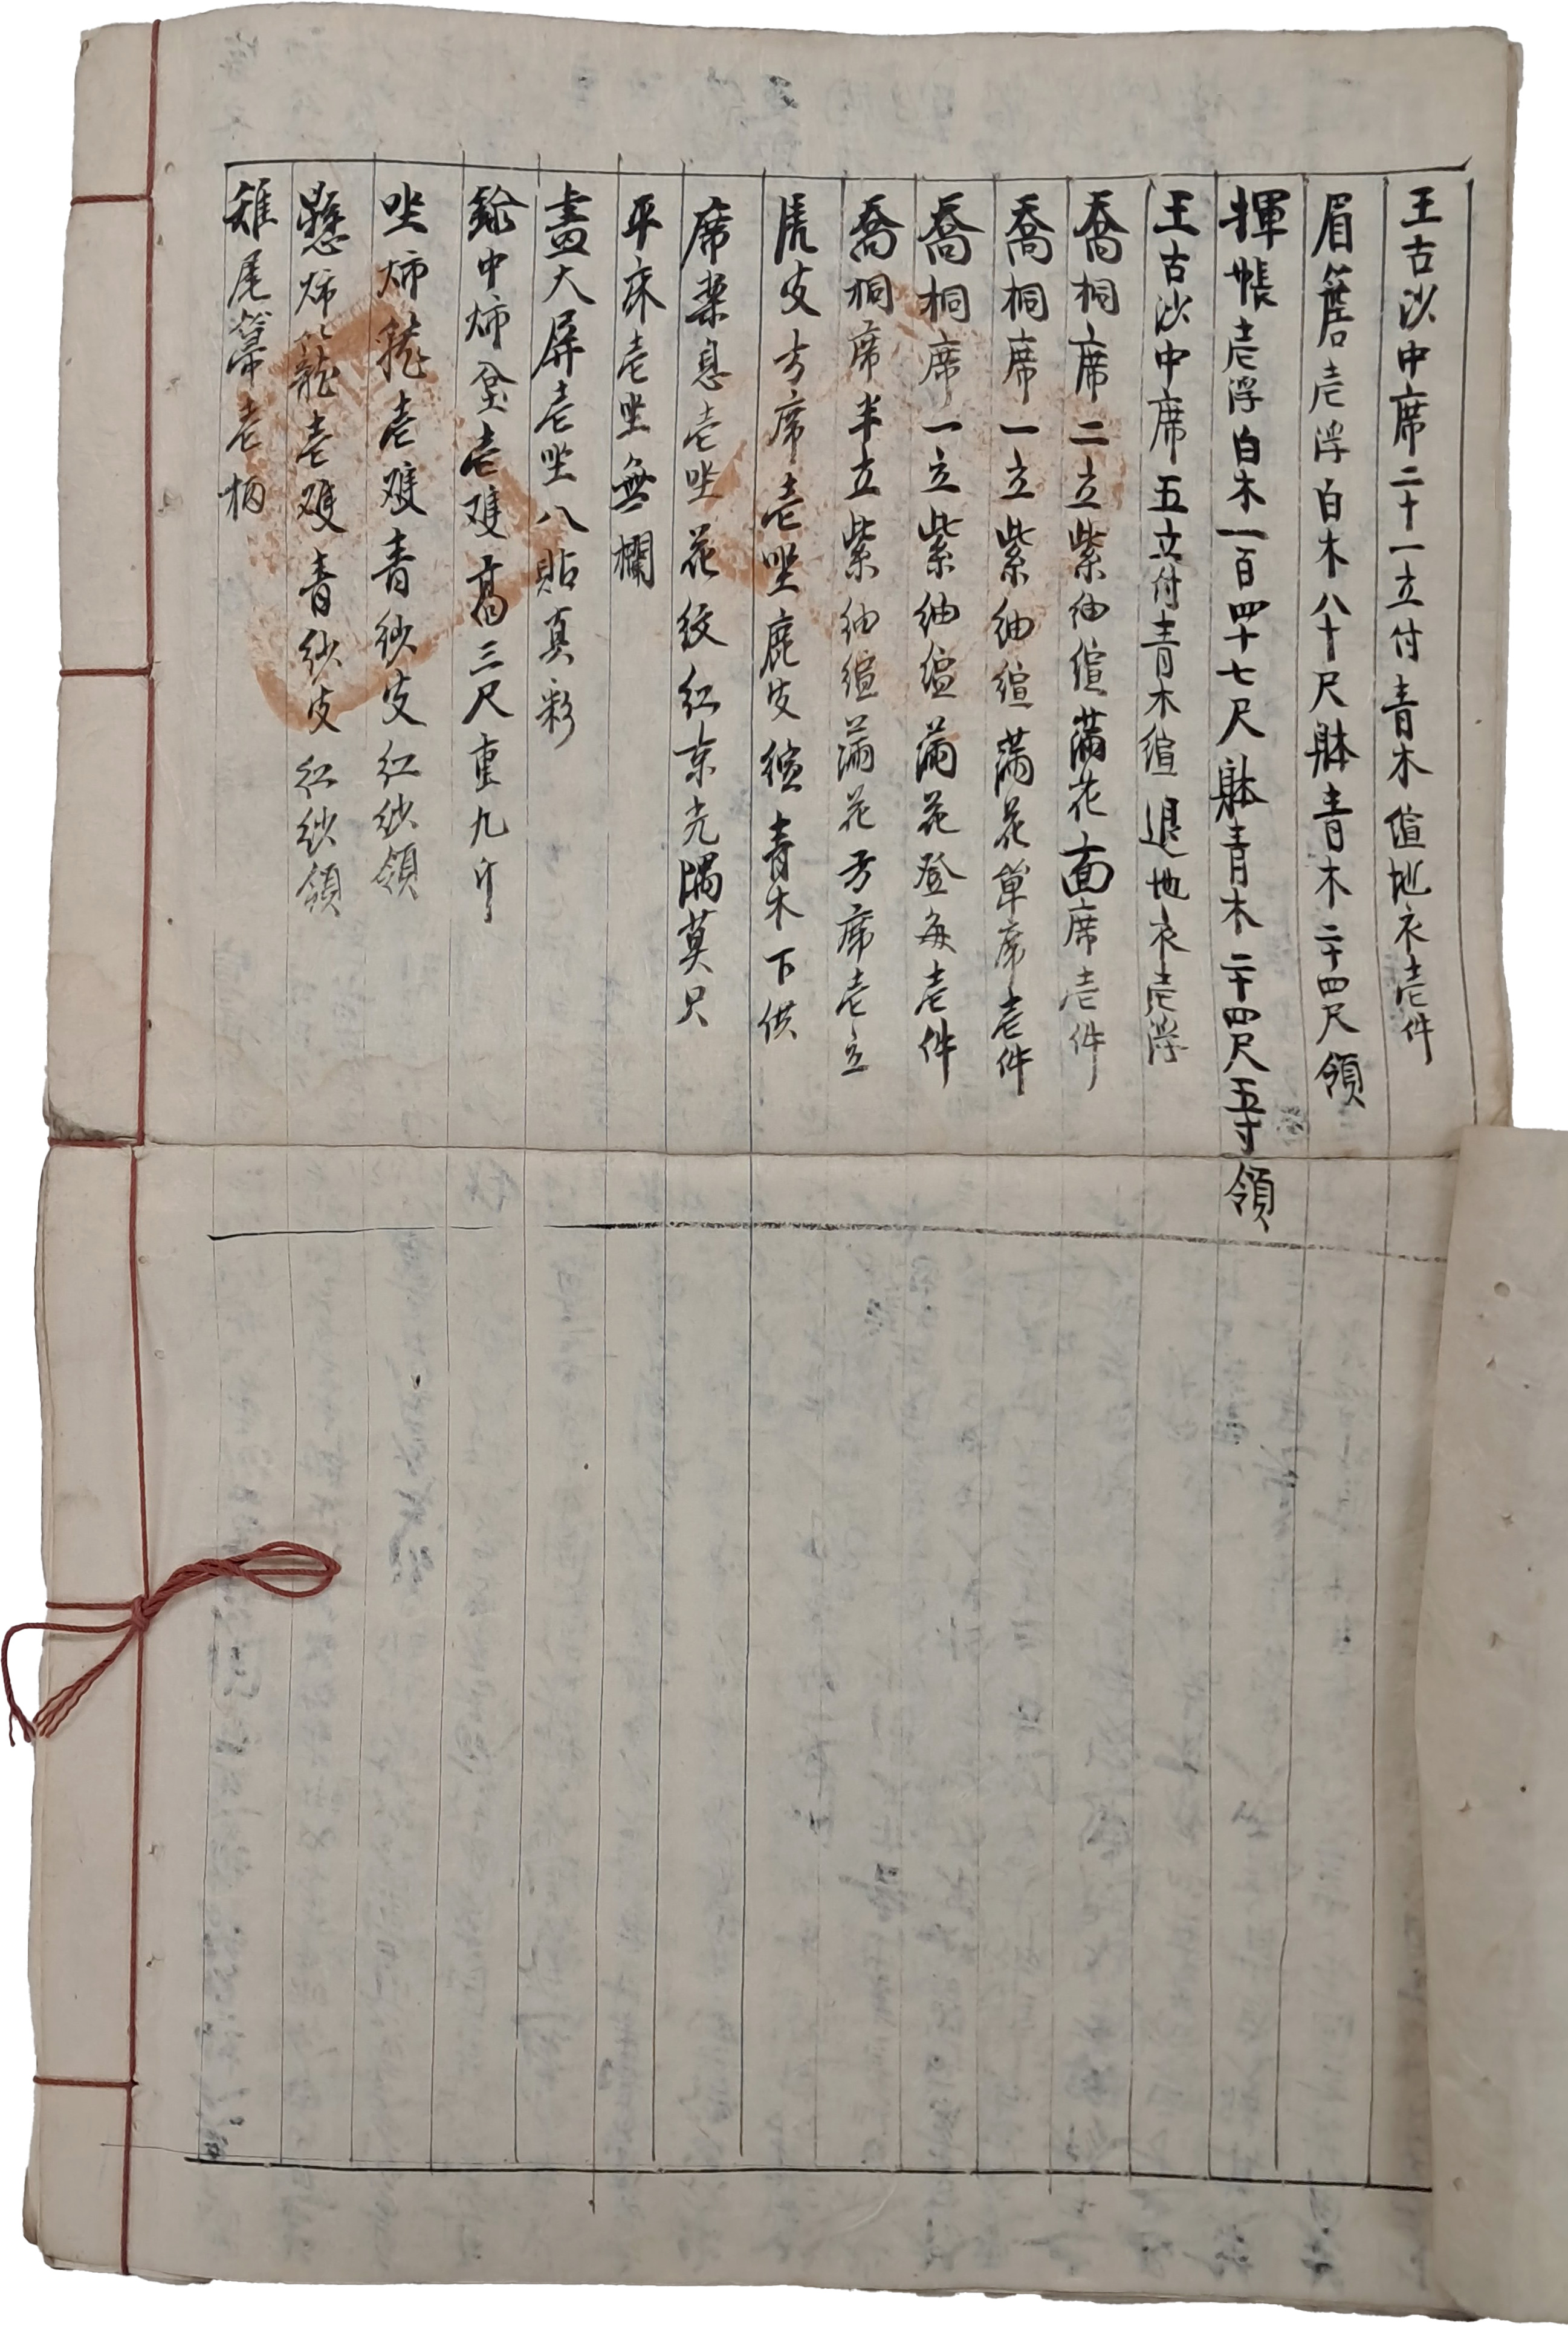 王古沙中席二十一立付青木縇地衣壱件
眉簷壱浮白木八十尺躰青木二十四尺領
揮帳壱浮白木一百四十七尺躰青木二十四尺五寸領
王古沙中席五立付青木縇退地衣壱浮
喬桐席二立紫紬縇滿花面席壱件
喬桐席一立紫紬縇滿花單席壱件
喬桐席一立紫紬縇滿花登每壱件
喬桐席半立紫紬縇滿花方席壱立
虎皮方席壱坐鹿皮縇青木下供
席案息壱坐花紋紅京光隅莫只
平床壱坐無欄
畵大屏壱坐八貼真彩
鍮中炉盆壱隻高三尺重九斤
坐炉籠壱隻青紗皮紅紗領
懸炉籠壱隻青紗皮紅紗領
雉尾箒壱柄